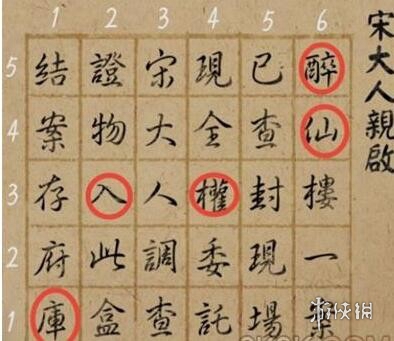 1 2 3 4 5 6
5
4
3
2
1
宋大人親啟
醉仙樓一案
已查封現場
現全權委託
宋大人調查
證物入此盒
結案存府庫
游侠网